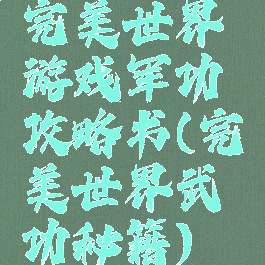 完美世界
游戏军功
攻略书(完
美世界武
功秘籍)